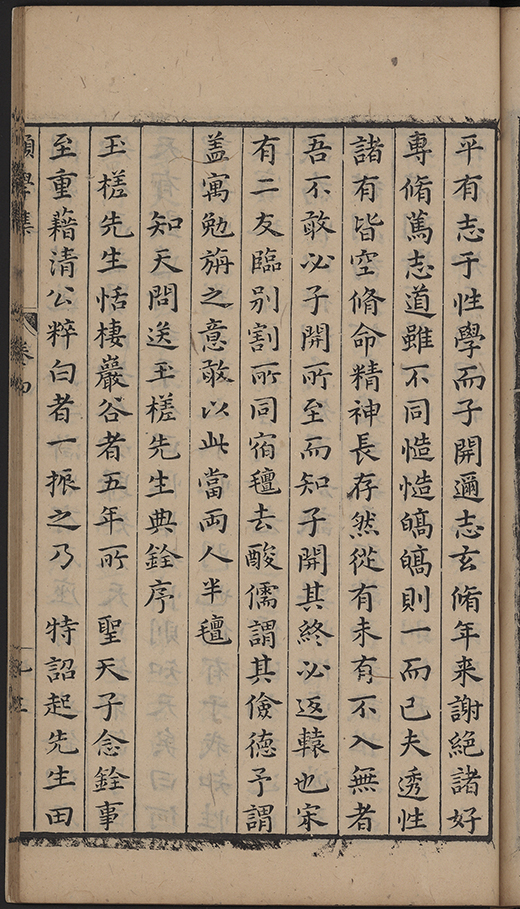 平有志于性學而子開邇志玄脩年来謝絕諸好
專脩篤志道雖不同慥慥皜皜則一而已夫透性
諸有皆空脩命精神長存然從有未有不入無者
吾不敢必子開所至而知子開其終必返轅也宋
有二友臨别割所同宿氊去酸儒謂其儉德予謂
盖寓勉旃之意敢以此當両人半氊
知天問送玉槎先生典銓序
玉槎先生恬棲巖谷者五年所　聖天子念銓事
至重藉清公粹白者一振之乃　特詔起先生田
願學集
卷四